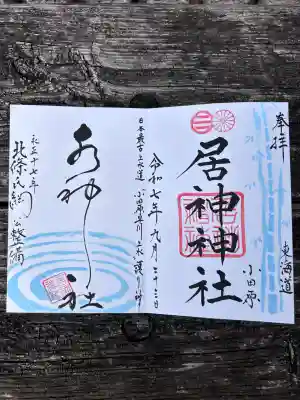 奉拝
東海道
小田原
居神神社
令和七年九月二十三日
日本最古上水道 小田原
水神社
永正十七年
北條氏綱公整備